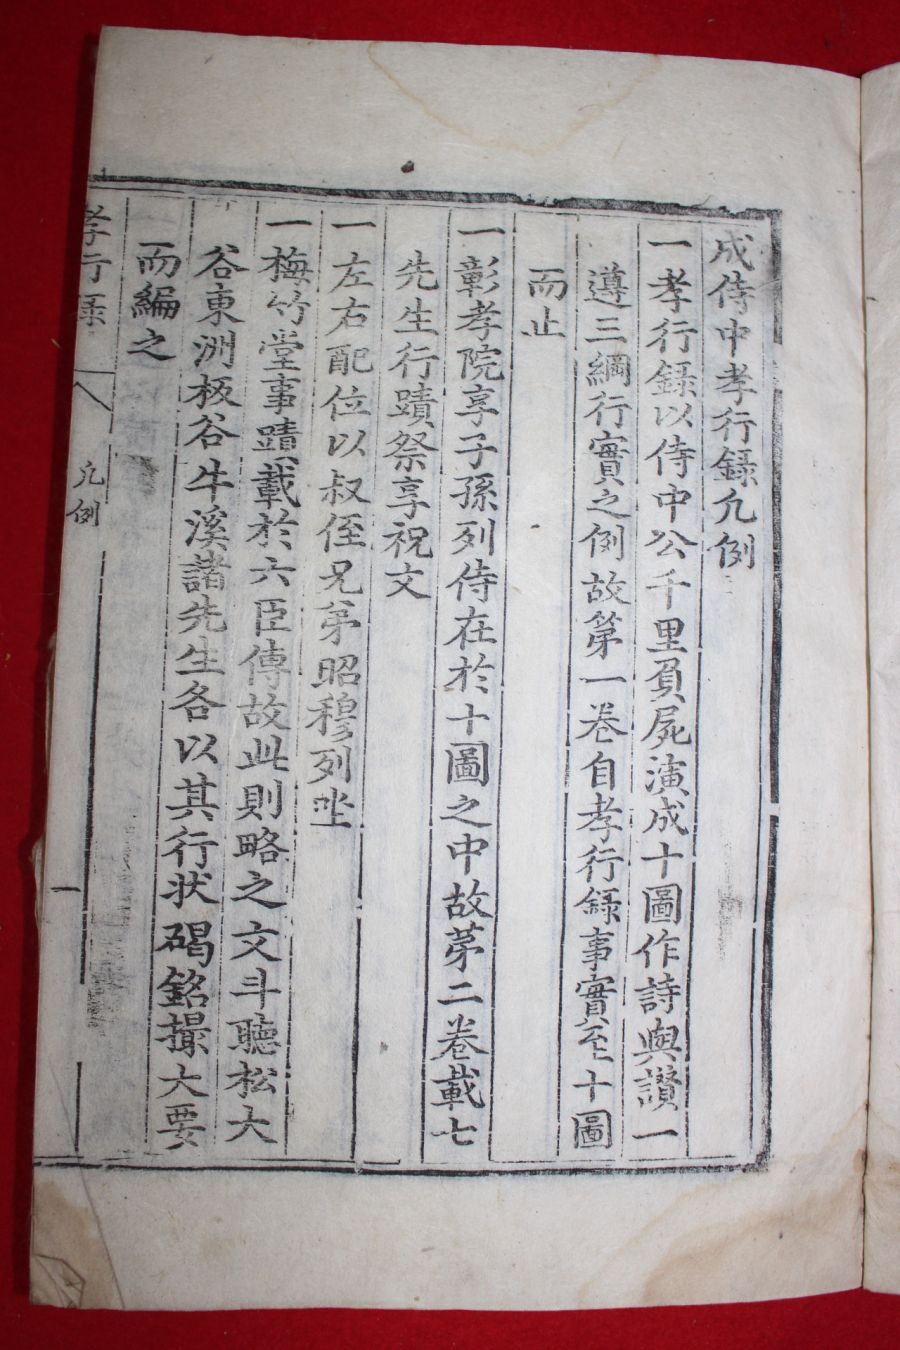 成侍中孝行錄凡例
一孝行錄以侍中公千里負屍演成十圖作詩與讃一
遵三綱行實之例故第一卷自孝行錄事實至十圖
而止
一彰孝院享子孫列侍在於十圖之中故茅二卷載七
先生行蹟祭享祝文
一左右配位以叔侄兄弟昭穆列坐
一梅竹堂事蹟載於六臣傳故此則略之文斗聽松大
谷東洲板谷牛溪諸先生各以其行状碣銘撮大要
而編之
孝行錄 凡例 一